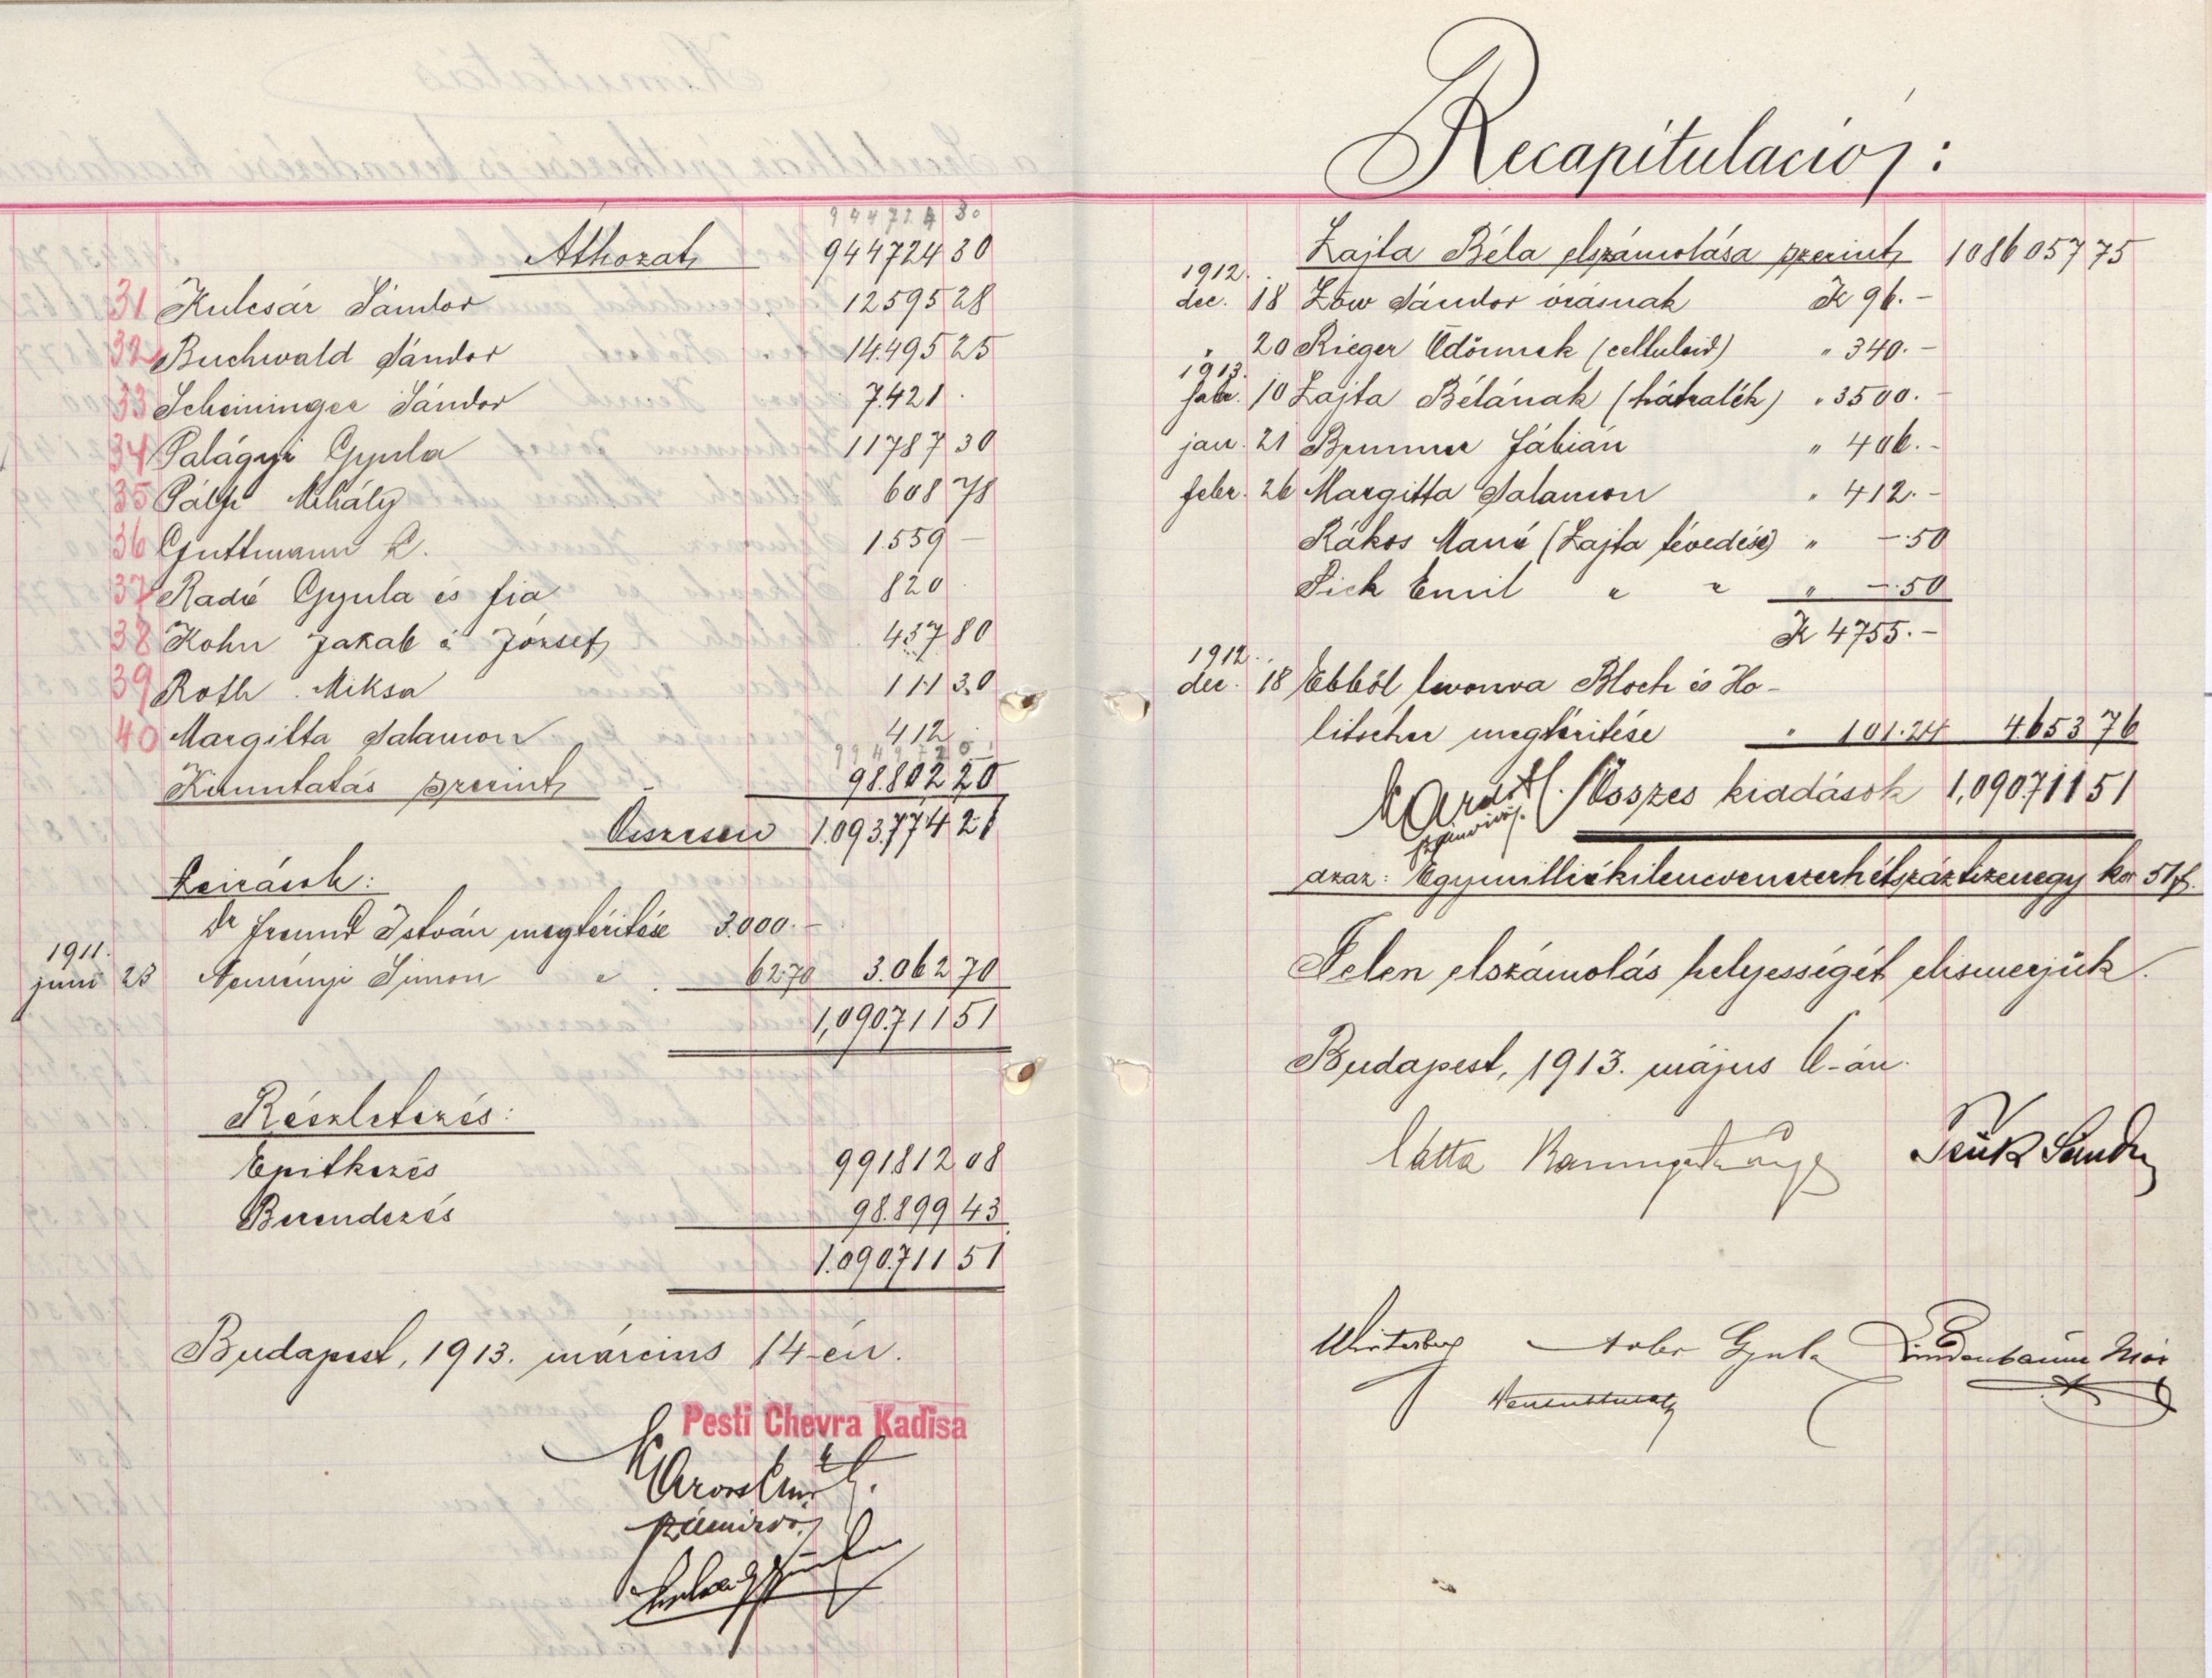 944724 30
Áthozat 944724 30
31 Kulcsár Sándor 12595 28
32 Buchwald Sándor 14.495 25
33 Scheininger Sándor 7.421 .
34 Palágyi Gyula 11787 30
35 Pálfi Mihály 608 78
36 Guttmann 1.559 –
37 Radó Gyula és fia 820 .
38 Kohn Jakab és József 437 80
39 Roth Miksa 111 30
40 Margitta Salamon 412 .
Kimutatás szerint 98.802 20
Összesen 1.093.774 21
Leirások:
Dr Freund István megtéritése 3.000.–
1911.
juni 23 Neményi Simon " 62.70 3.062 70
1,090.711 51
Részletezés:
Épitkezés 991812 08
Berendezés 98.899 43
1.090.711 51
Budapest, 1913. március 14-én.
Pesti Chevra Kadisa
számvivő
Recapituláció:
Lajta Béla elszámolása szerint 1086057 75
1912.
dec. 18 Löw Sándor órásnak K 96.–
" 20 Rieger Ödönnek (celluloid) " 340.–
1913.
febr. 10 Lajta Bélának (hátralék) " 3500.–
jan. 21 Brummer Fábián " 406.–
febr. 26 Margitta Salamon " 412.–
Rákos Manó (Lajta tévedése) " –.50
Pick Emil " " " –.50
K 4755.–
1912.
dec. 18 Ebből levonva Bloch és Ho-
litscher megtéritése " 101.24 4.653 76
Összes kiadások 1,090.711 51
számvivő.
azaz: Egymilliókilencvenezerhétszáztizenegy kor 51 f.
Jelen elszámolás helyességét elismerjük.
Budapest, 1913. május 6-án.
Sándor
Gyula Lindenbaum Mór